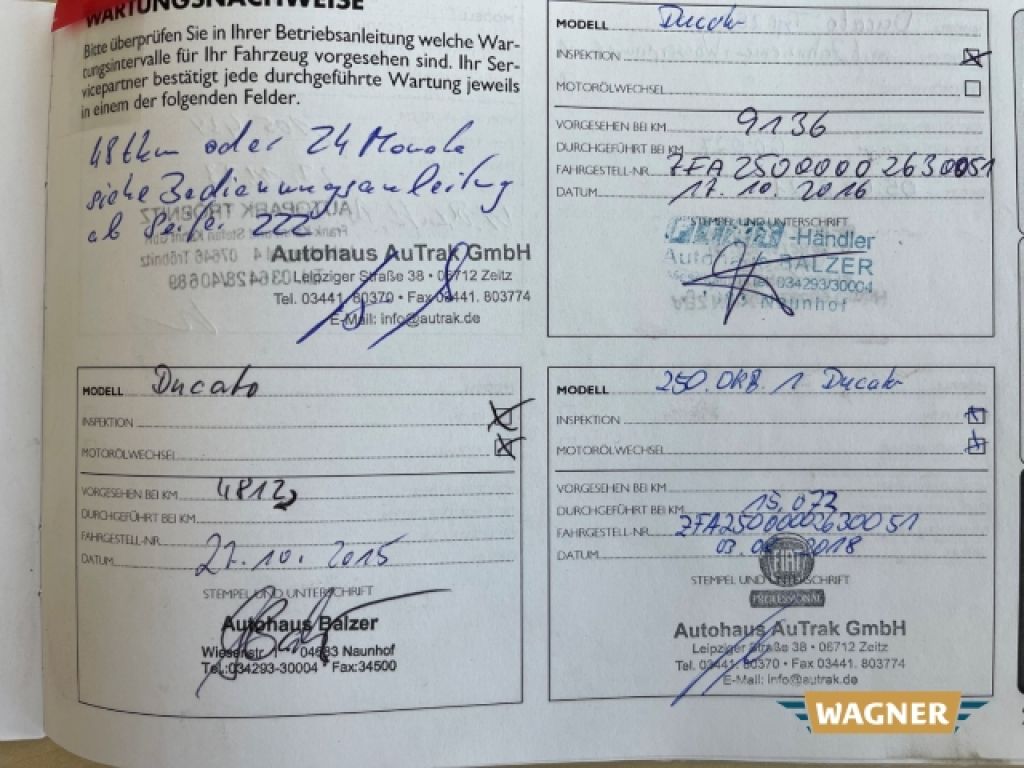 WARTUNGSNACHWEISE
Bitte überprüfen Sie in Ihrer Betriebsanleitung welche War-
tungsintervalle für Ihr Fahrzeug vorgesehen sind. Ihr Ser-
vicepartner bestätigt jede durchgeführte Wartung jeweils
in einem der folgenden Felder.
48tkm oder 24 Monate
siehe Bedienungsanleitung
ab Seite 222
Autohaus AuTrak GmbH
Leipziger Straße 38 • 06712 Zeitz
Tel. 03441. 80370 • Fax 03441. 803774
E-Mail: info@autrak.de
MODELL Ducato
INSPEKTION
MOTORÖLWECHSEL
VORGESEHEN BEI KM 9136
DURCHGEFÜHRT BEI KM
FAHRGESTELL-NR. ZFA25000002630051
DATUM 17.10.2016
STEMPEL UND UNTERSCHRIFT
FIAT -Händler
Autohaus BALZER
034293/30004
Naunhof
MODELL Ducato
INSPEKTION
MOTORÖLWECHSEL
VORGESEHEN BEI KM 4812
DURCHGEFÜHRT BEI KM
FAHRGESTELL-NR.
DATUM 27.10.2015
STEMPEL UND UNTERSCHRIFT
Autohaus Balzer
Wiesenstr. 1 04683 Naunhof
Tel.:034293-30004 Fax:34500
MODELL 250.DKB.1 Ducato
INSPEKTION
MOTORÖLWECHSEL
VORGESEHEN BEI KM
DURCHGEFÜHRT BEI KM 15.073
FAHRGESTELL-NR. ZFA25000002630051
DATUM 03. 2018
STEMPEL UND UNTERSCHRIFT
FIAT
PROFESSIONAL
Autohaus AuTrak GmbH
Leipziger Straße 38 • 06712 Zeitz
Tel. 03441. 80370 • Fax 03441. 803774
E-Mail: info@autrak.de
WAGNER